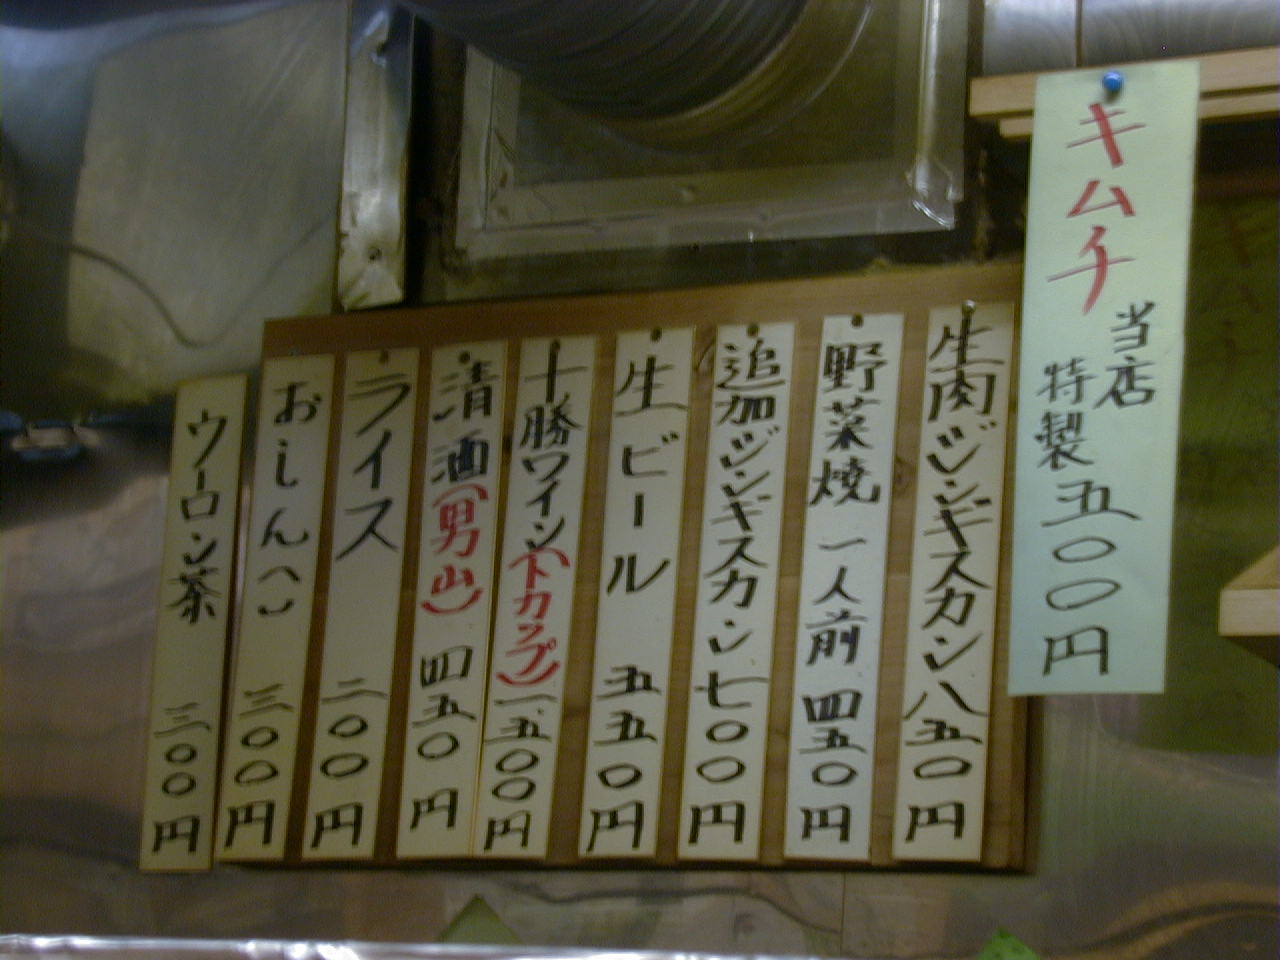 キムチ 当店特製 五〇〇円
生肉ジンギスカン 八五〇円
野菜焼 一人前 四五〇円
追加ジンギスカン 七〇〇円
生ビール 五五〇円
十勝ワイン(トカップ) 一、五〇〇円
清酒(男山) 四五〇円
ライス 二〇〇円
おしんこ 三〇〇円
ウーロン茶 三〇〇円